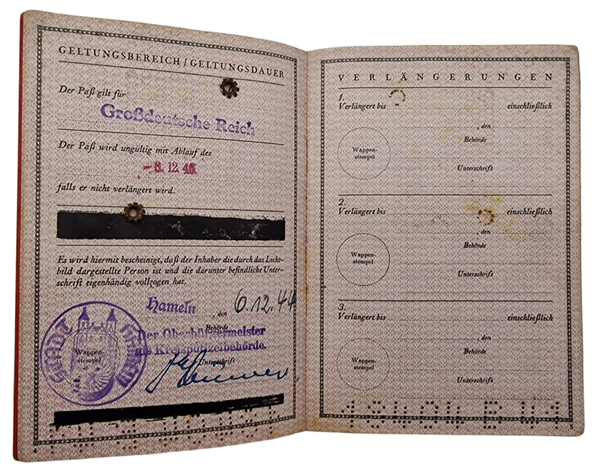 GELTUNGSBEREICH / GELTUNGSDAUER
Der Paß gilt für
Großdeutsche Reich
Der Paß wird ungültig mit Ablauf des
falls er nicht verlängert wird.
Es wird hiermit bescheinigt, daß der Inhaber die durch das Licht-
bild dargestellte Person ist und die darunter befindliche Unter-
schrift eigenhändig vollzogen hat.
Hameln, den 6.12.44
Behörde
Der Oberbürgermeister
als Kreispolizeibehörde.
Wappen-
stempel
Unterschrift
STADT HAMELN
VERLÄNGERUNGEN
1.
Verlängert bis einschließlich
, den
Behörde
Wappen-
stempel
Unterschrift
2.
Verlängert bis einschließlich
, den
Behörde
Wappen-
stempel
Unterschrift
3.
Verlängert bis einschließlich
, den
Behörde
Wappen-
stempel
Unterschrift